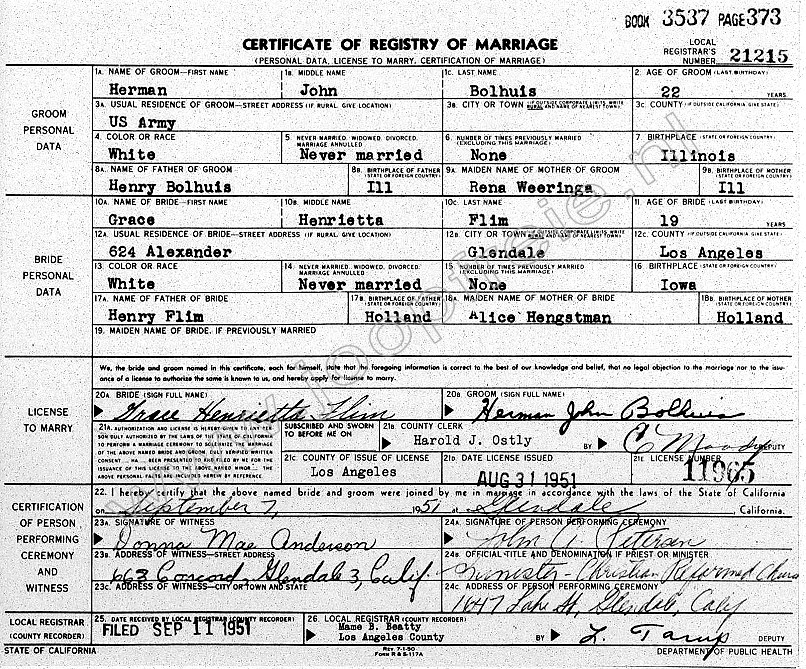 BOOK 3537 PAGE 373
CERTIFICATE OF REGISTRY OF MARRIAGE
(PERSONAL DATA, LICENSE TO MARRY, CERTIFICATION OF MARRIAGE)
LOCAL REGISTRAR'S NUMBER 21215
GROOM PERSONAL DATA
1A. NAME OF GROOM—FIRST NAME 1B. MIDDLE NAME 1C. LAST NAME 2. AGE OF GROOM (LAST BIRTHDAY)
Herman John Bolhuis 22 YEARS
3A. USUAL RESIDENCE OF GROOM—STREET ADDRESS (IF RURAL GIVE LOCATION) 3B. CITY OR TOWN (IF OUTSIDE CORPORATE LIMITS, WRITE RURAL AND NAME OF NEAREST TOWN) 3C. COUNTY (IF OUTSIDE CALIFORNIA GIVE STATE)
US Army
4. COLOR OR RACE 5. NEVER MARRIED, WIDOWED, DIVORCED, MARRIAGE ANNULLED 6. NUMBER OF TIMES PREVIOUSLY MARRIED (EXCLUDING THIS MARRIAGE) 7. BIRTHPLACE (STATE OR FOREIGN COUNTRY)
White Never married None Illinois
8A. NAME OF FATHER OF GROOM 8B. BIRTHPLACE OF FATHER (STATE OR FOREIGN COUNTRY) 9A. MAIDEN NAME OF MOTHER OF GROOM 9B. BIRTHPLACE OF MOTHER (STATE OR FOREIGN COUNTRY)
Henry Bolhuis Ill Rena Weeringa Ill
BRIDE PERSONAL DATA
10A. NAME OF BRIDE—FIRST NAME 10B. MIDDLE NAME 10C. LAST NAME 11. AGE OF BRIDE (LAST BIRTHDAY)
Grace Henrietta Flim 19 YEARS
12A. USUAL RESIDENCE OF BRIDE—STREET ADDRESS (IF RURAL, GIVE LOCATION) 12B. CITY OR TOWN (IF OUTSIDE CORPORATE LIMITS, WRITE RURAL AND NAME OF NEAREST TOWN) 12C. COUNTY (IF OUTSIDE CALIFORNIA GIVE STATE)
624 Alexander Glendale Los Angeles
13. COLOR OR RACE 14. NEVER MARRIED, WIDOWED, DIVORCED, MARRIAGE ANNULLED 15. NUMBER OF TIMES PREVIOUSLY MARRIED (EXCLUDING THIS MARRIAGE) 16 BIRTHPLACE (STATE OR FOREIGN COUNTRY)
White Never married None Iowa
17A. NAME OF FATHER OF BRIDE 17B. BIRTHPLACE OF FATHER (STATE OR FOREIGN COUNTRY) 18A. MAIDEN NAME OF MOTHER OF BRIDE 18B. BIRTHPLACE OF MOTHER (STATE OR FOREIGN COUNTRY)
Henry Flim Holland Alice Hengstman Holland
19. MAIDEN NAME OF BRIDE, IF PREVIOUSLY MARRIED
LICENSE TO MARRY
We, the bride and groom named in this certificate, each for himself, state that the foregoing information is correct to the best of our knowledge and belief, that no legal objection to the marriage nor to the issuance of a license to authorize the same is known to us, and hereby apply for license to marry.
20A. BRIDE (SIGN FULL NAME) 20B. GROOM (SIGN FULL NAME)
Grace Henrietta Flim Herman John Bolhuis
21A. AUTHORIZATION AND LICENSE IS HEREBY GIVEN TO ANY PERSON DULY AUTHORIZED BY THE LAWS OF THE STATE OF CALIFORNIA TO PERFORM A MARRIAGE CEREMONY TO SOLEMNIZE THE MARRIAGE OF THE ABOVE NAMED BRIDE AND GROOM. DULY VERIFIED WRITTEN CONSENT HA BEEN PRESENTED TO AND FILED BY ME FOR THE ISSUANCE OF THIS LICENSE TO THE ABOVE NAMED MINOR THE ABOVE PERSONAL FACTS ARE INCLUDED HEREIN BY REFERENCE.
SUBSCRIBED AND SWORN TO BEFORE ME ON
21B. COUNTY CLERK
Harold J. Ostly BY C Moody DEPUTY
21C. COUNTY OF ISSUE OF LICENSE 21D. DATE LICENSE ISSUED 21E. LICENSE NUMBER
Los Angeles AUG 31 1951 11965
CERTIFICATION OF PERSON PERFORMING CEREMONY AND WITNESS
22. I hereby certify that the above named bride and groom were joined by me in marriage in accordance with the laws of the State of California
on September 7, 1951 at Glendale California.
23A. SIGNATURE OF WITNESS 24A. SIGNATURE OF PERSON PERFORMING CEREMONY
Donna Mae Anderson John A. Petersen
23B. ADDRESS OF WITNESS—STREET ADDRESS 24B. OFFICIAL TITLE AND DENOMINATION IF PRIEST OR MINISTER
663 Concord, Glendale 3, Calif. minister Christian Reformed
23C. ADDRESS OF WITNESS—CITY OR TOWN AND STATE 24C. ADDRESS OF PERSON PERFORMING CEREMONY
1647 Lake St, Glendale, Calif
LOCAL REGISTRAR (COUNTY RECORDER)
25. DATE RECEIVED BY LOCAL REGISTRAR (COUNTY RECORDER) 26. LOCAL REGISTRAR (COUNTY RECORDER)
FILED SEP 11 1951 Mame B. Beatty
Los Angeles County BY DEPUTY
STATE OF CALIFORNIA REV. 7-1-50 FORM R & S-117A DEPARTMENT OF PUBLIC HEALTH